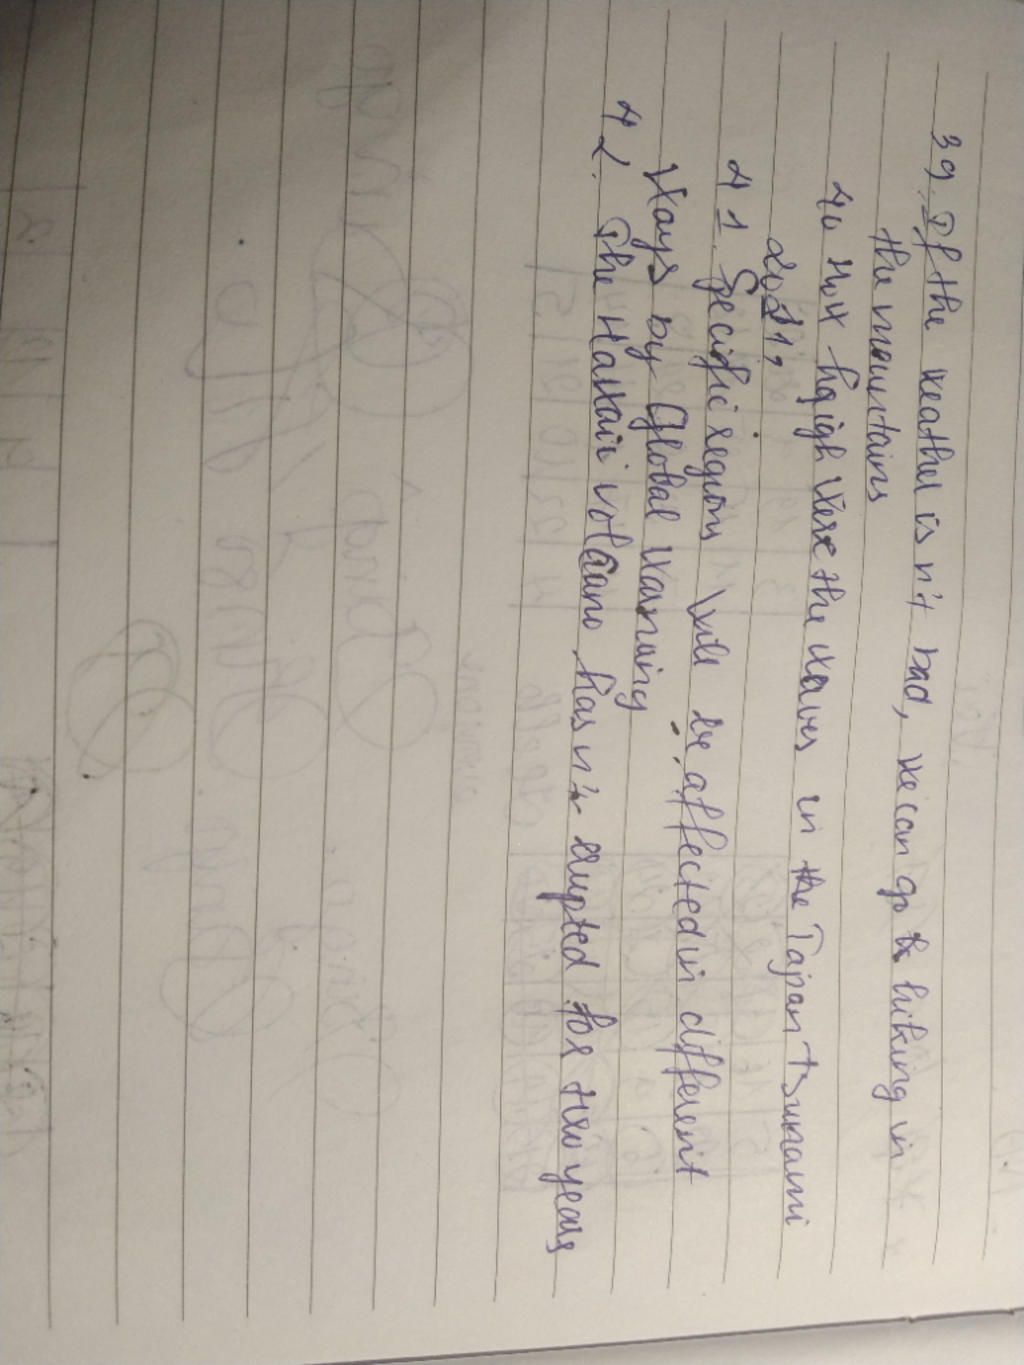 39. If the weather isn't bad, we can go to hiking in
the mountains
40 How haigh were the waves in the Tajpan tsunami
2011,
41. Specific regions wile be affected in different
ways by Global warning
42. The Hawaii volcano has n't erupted for two years